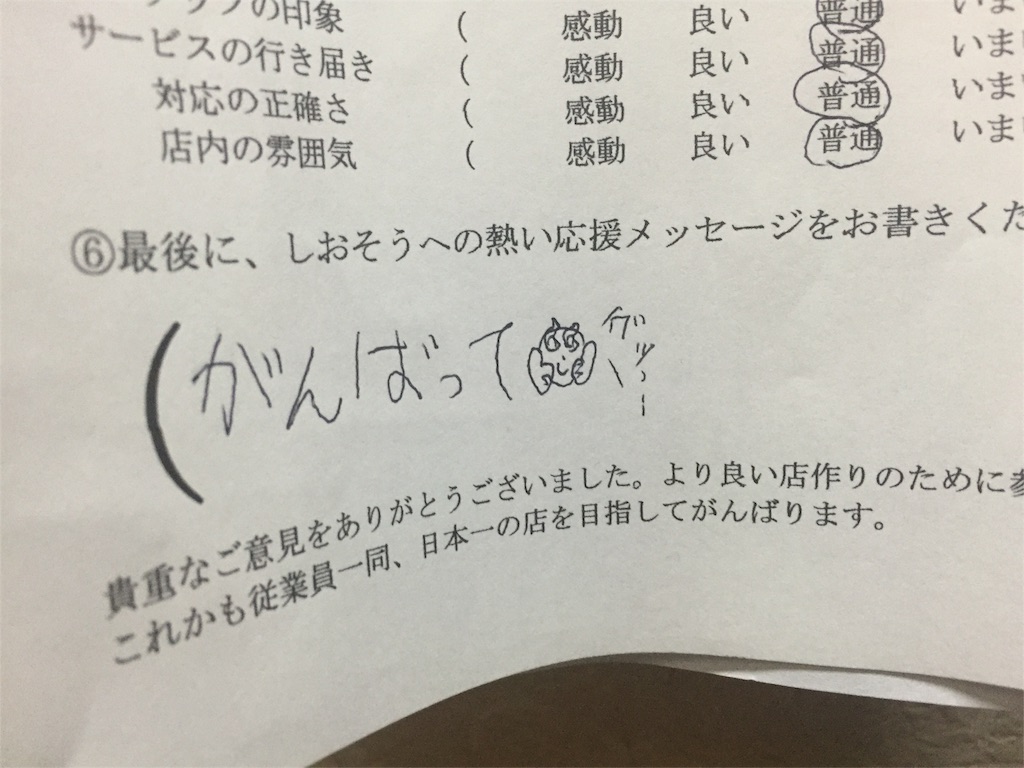 の印象 ( 感動 良い 普通 いま
サービスの行き届き ( 感動 良い 普通 いま
対応の正確さ ( 感動 良い 普通 いま
店内の雰囲気 ( 感動 良い 普通 いま
⑥最後に、しおそうへの熱い応援メッセージをお書きくだ
(がんばって グッー
貴重なご意見をありがとうございました。より良い店作りのために参
これかも従業員一同、日本一の店を目指してがんばります。